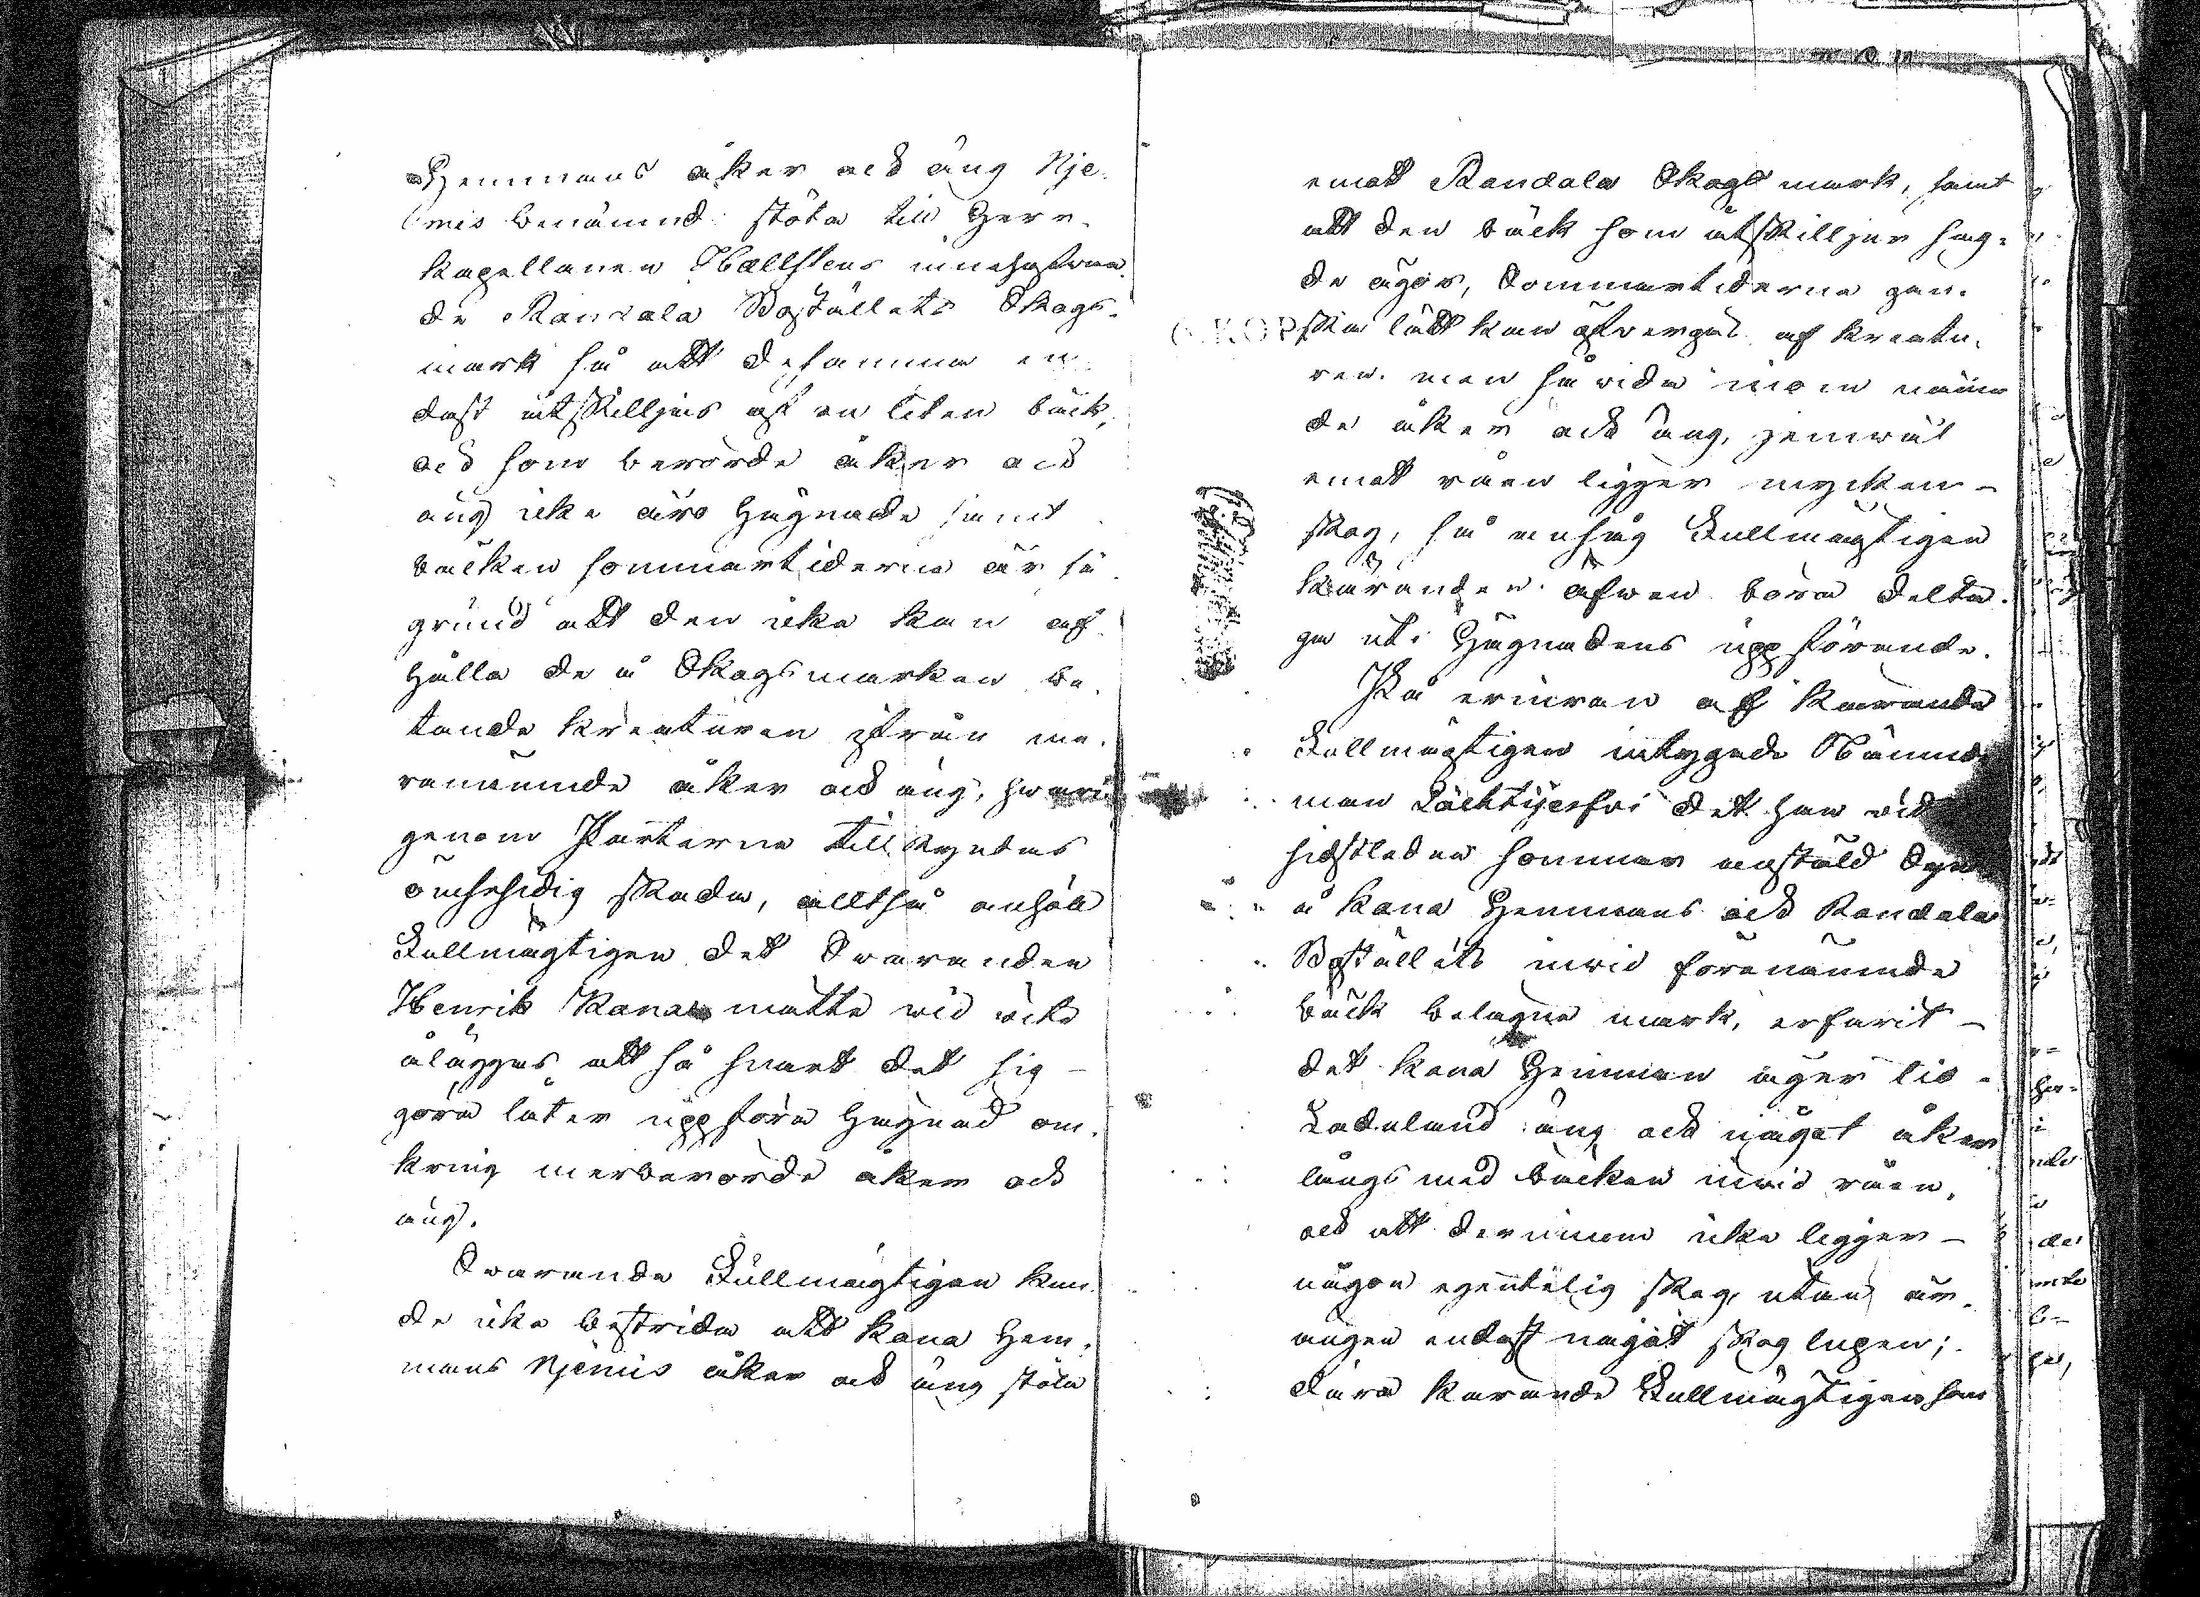 Hemmans åker ock äng Nje-
mis benämnd stöta till Herr
kapellanen Hællstens innehafwan-
de Randala Boställets Skogs-
mark så att desamma en-
dast åtskilljas af en liten bäck,
ock som berörde åker ock
äng icke äro Hägnade samt
bäcken sommartiderna är så
grund att den icke kan af-
hålla de å Skogsmarken be-
tande kreaturen ifrån me-
ranämnde åker ock äng, hwari-
genom Parterna tillskyndas
ömsesidig skada, alltså anhöll
Fullmägtigen det Swaranden
Henrik Kana måtte wid wite
åläggas att så snart det sig
göra låter uppföra Hägnad om-
kring merberörde åker ock
äng.
Swarande Fullmägtigen kun-
de icke bestrida att Kana Hem-
mans Njemis åker ock äng stöta
emot Randala Skogs mark, samt
att den bäck som åtskilljer sag-
de ägor, Sommartiderna gan-
ska lätt kan öfvergås af kreatu-
ren. men så wida inom nämn
de åker ock äng, jemwäl
emot råen ligger mycken
skog, så ansåg Fullmägtigen
Käranden äfwen böra delta-
ga uti Hägnadens uppförande.
På erinran af Kärande
Fullmägtigen intygade Nämnde-
man det han wid
sidstleden sommar anstäld Syn
å Kana Hemmans ock Randala
Boställets inwid förenämnde
bäck belägna mark, erfarit
det Kana Hemman äger tio
Ladaland äng ock något åker
längs med bäcken inwid råen,
ock att derinom icke ligger
någon egentelig skog, utan är
ängen endast något skog lupen;
Kärande Fullmägtigen som